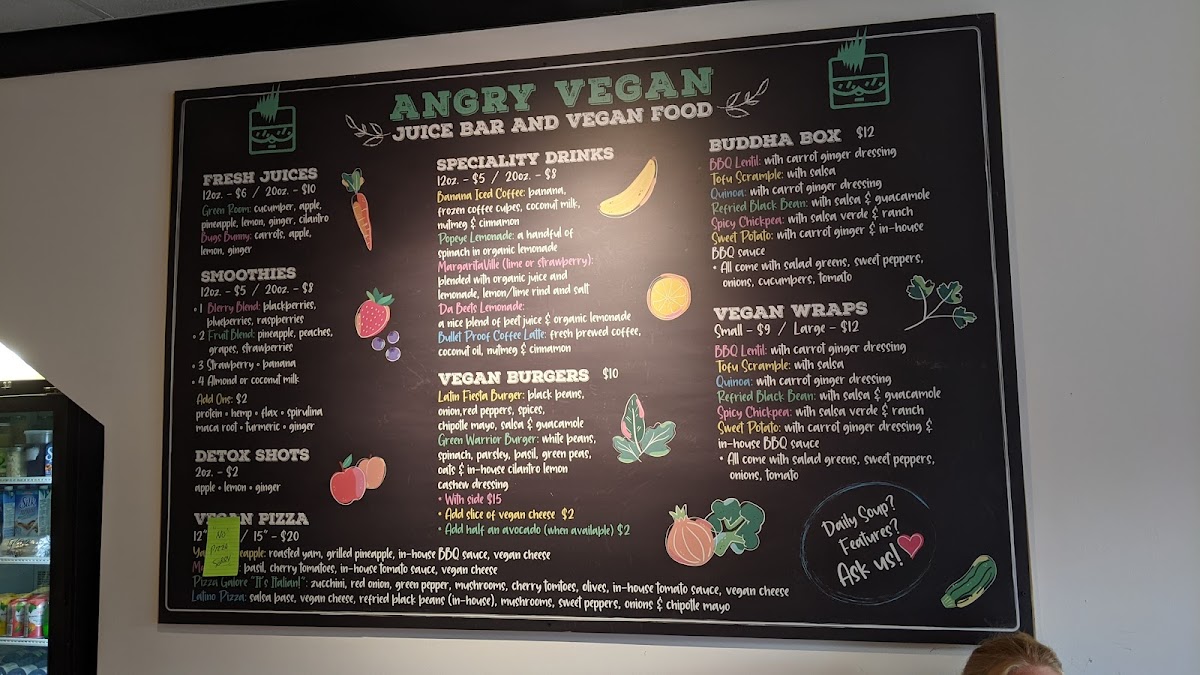 ANGRY VEGAN
JUICE BAR AND VEGAN FOOD
FRESH JUICES
12oz. - $6 / 20oz. - $10
Green Room: cucumber, apple,
pineapple, lemon, ginger, cilantro
Bugs Bunny: carrots, apple,
lemon, ginger
SMOOTHIES
12oz. - $5 / 20oz. - $8
• 1 Berry Blend: blackberries,
blueberries, raspberries
• 2 Fruit Blend: pineapple, peaches,
grapes, strawberries
• 3 Strawberry • banana
• 4 Almond or coconut milk
Add Ons: $2
protein • hemp • flax • spirulina
maca root • turmeric • ginger
DETOX SHOTS
2oz. - $2
apple • lemon • ginger
VEGAN PIZZA
12" / 15" - $20
NO
PIZZA
SORRY
roasted yam, grilled pineapple, in-house BBQ sauce, vegan cheese
basil, cherry tomatoes, in-house tomato sauce, vegan cheese
Pizza Galore "It's Italian!": zucchini, red onion, green pepper, mushrooms, cherry tomtoes, olives, in-house tomato sauce, vegan cheese
Latino Pizza: salsa base, vegan cheese, refried black beans (in-house), mushrooms, sweet peppers, onions & chipotle mayo
SPECIALITY DRINKS
12oz. - $5 / 20oz. - $8
Banana Iced Coffee: banana,
frozen coffee cubes, coconut milk,
nutmeg & cinnamon
Popeye Lemonade: a handful of
spinach in organic lemonade
MargaritaVille (lime or strawberry):
blended with organic juice and
lemonade, lemon/lime rind and salt
Da Beets Lemonade:
a nice blend of beet juice & organic lemonade
Bullet Proof Coffee Latte: fresh brewed coffee,
coconut oil, nutmeg & cinnamon
VEGAN BURGERS $10
Latin Fiesta Burger: black beans,
onion,red peppers, spices,
chipotle mayo, salsa & guacamole
Green Warrior Burger: white beans,
spinach, parsley, basil, green peas,
oats & in-house cilantro lemon
cashew dressing
• With side $15
• Add slice of vegan cheese $2
• Add half an avocado (when available) $2
BUDDHA BOX $12
BBQ Lentil: with carrot ginger dressing
Tofu Scramble: with salsa
Quinoa: with carrot ginger dressing
Refried Black Bean: with salsa & guacamole
Spicy Chickpea: with salsa verde & ranch
Sweet Potato: with carrot ginger & in-house
BBQ sauce
• All come with salad greens, sweet peppers,
onions, cucumbers, tomato
VEGAN WRAPS
Small - $9 / Large - $12
BBQ Lentil: with carrot ginger dressing
Tofu Scramble: with salsa
Quinoa: with carrot ginger dressing
Refried Black Bean: with salsa & guacamole
Spicy Chickpea: with salsa verde & ranch
Sweet Potato: with carrot ginger dressing &
in-house BBQ sauce
• All come with salad greens, sweet peppers,
onions, tomato
Daily Soup?
Features?
Ask us!